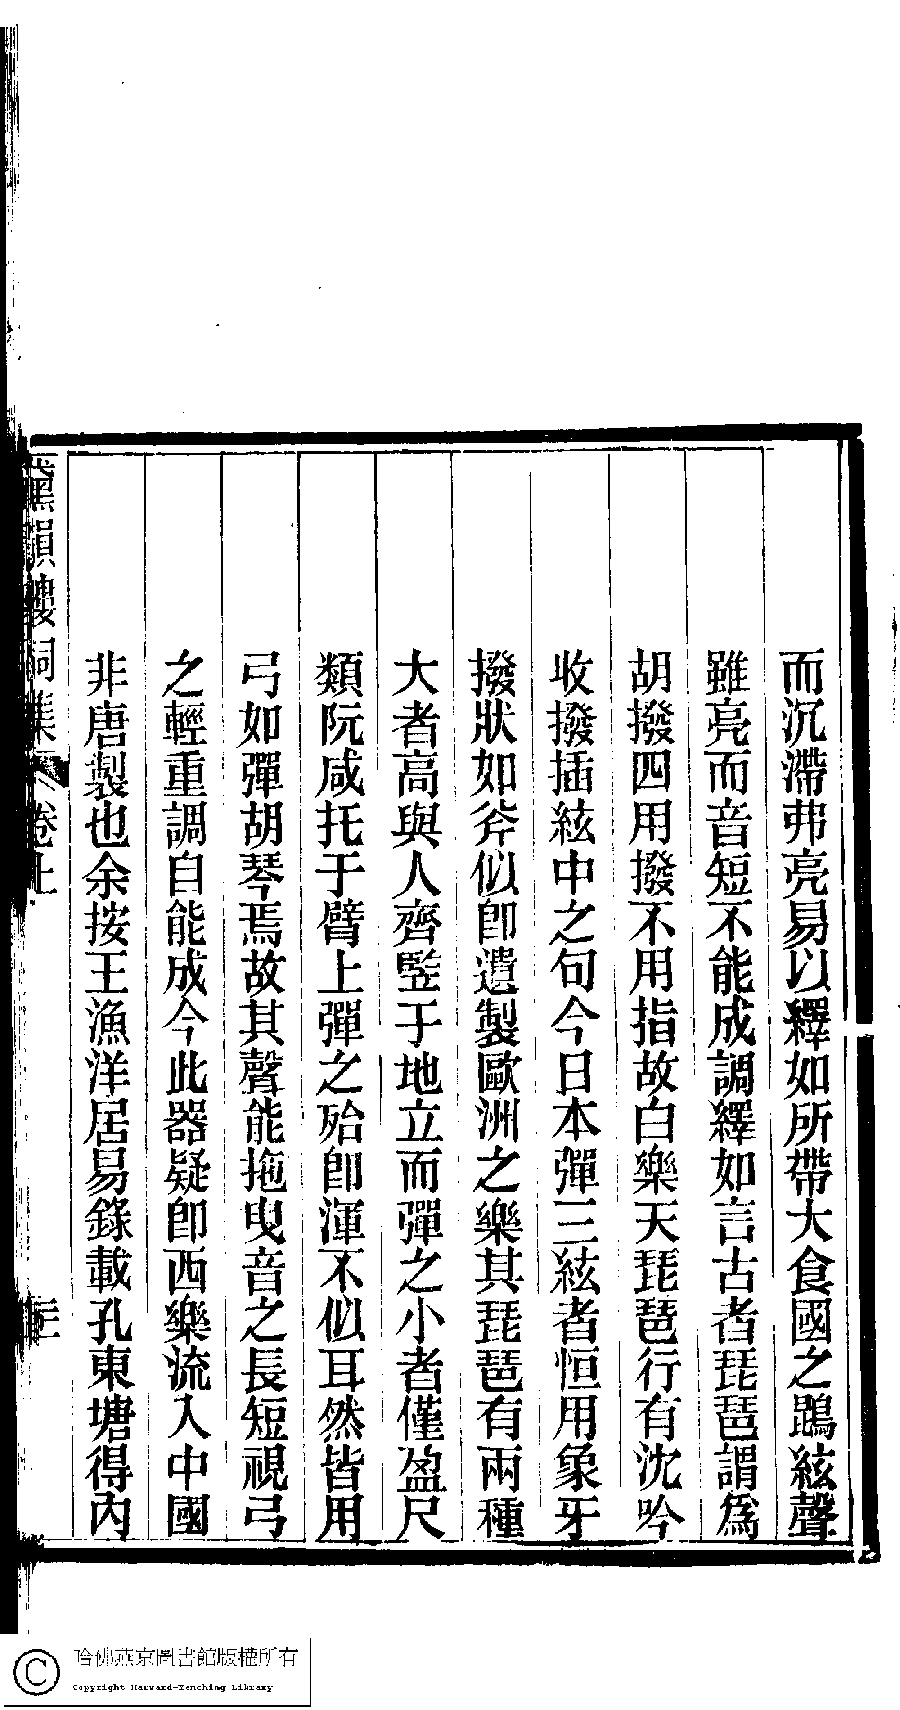 而沉滯弗亮易以繹如所帶大食國之鵾絃聲
雖亮而音短不能成調繹如言古者琵琶謂爲
胡撥四用撥不用指故白樂天琵琶行有沈吟
收撥插絃中之句今日本彈三絃者恒用象牙
撥狀如斧似卽遺製歐洲之樂其琵琶有兩種
大者高與人齊竪于地立而彈之小者僅盈尺
類阮咸托于臂上彈之殆卽渾不似耳然皆用
弓如彈胡琴焉故其聲能拖曳音之長短視弓
之輕重調自能成今此器疑卽西樂流入中國
非唐製也余按王漁洋居易錄載孔東塘得內
韻樓詞集 卷上
哈佛燕京圖書館版權所有
Copyright Harvard-Yenching Library